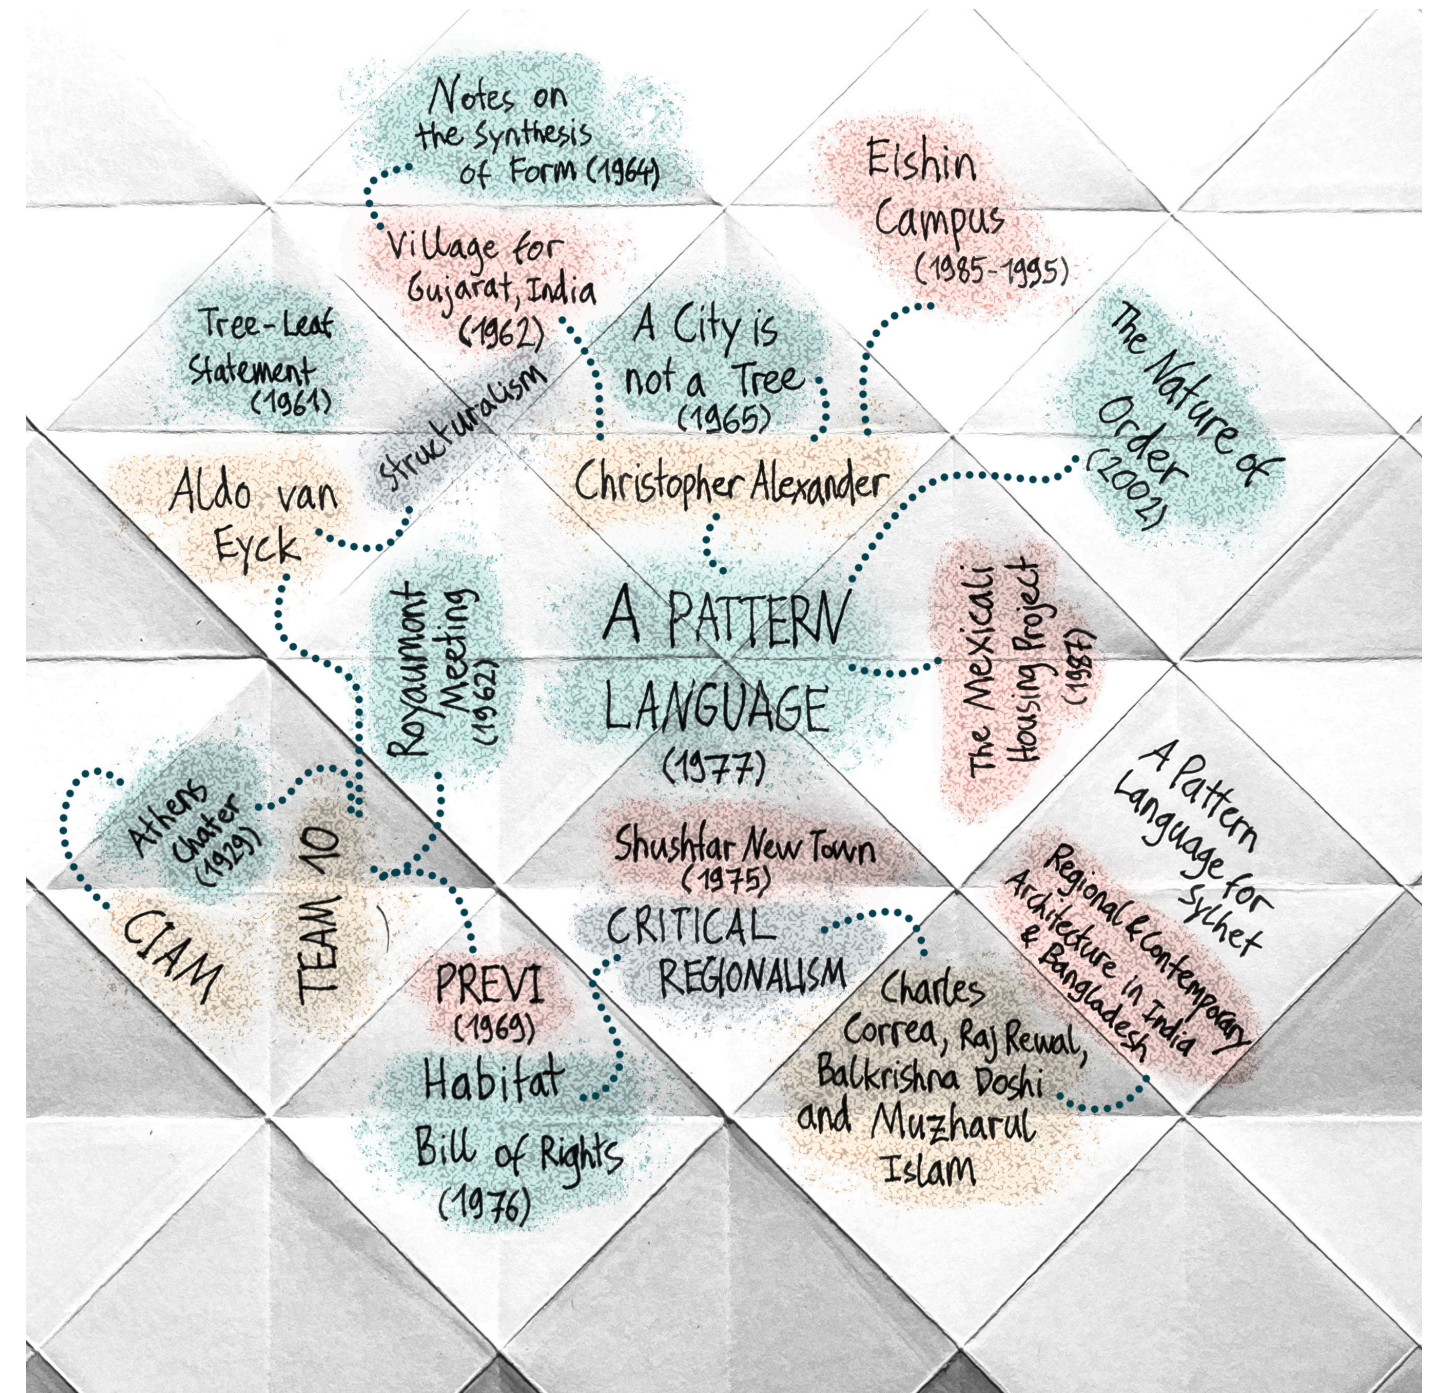 Notes on
the Synthesis
of Form (1964)
Elshin
Campus
(1985-1995)
Village for
Gujarat, India
(1962)
Tree-Leaf
Statement
(1961)
Structuralism
A City is
not a Tree
(1965)
The Nature of
Order
(2002)
Aldo van
Eyck
Christopher Alexander
Royaumont
Meeting
(1962)
A PATTERN
LANGUAGE
(1977)
The Mexicali
Housing Project
(1987)
Athens
Chater
(1929)
CIAM
TEAM 10
Shushtar New Town
(1975)
CRITICAL
REGIONALISM
A Pattern
Language for
Sylhet
Regional & Contemporary
Architecture in India
& Bangladesh
PREVI
(1969)
Habitat
Bill of Rights
(1976)
Charles
Correa, Raj Rewal,
Balkrishna Doshi
and Muzharul
Islam